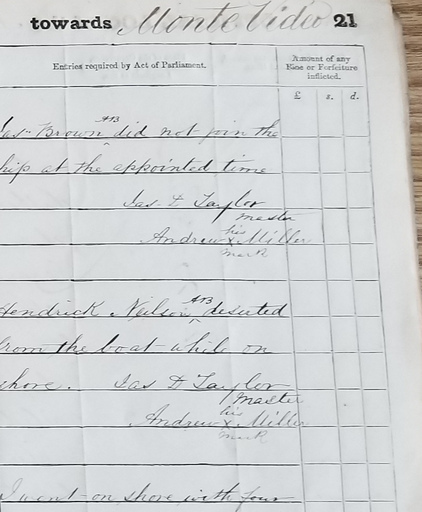 towards Monte Video 21
Entries required by Act of Parliament.
Amount of any
Fine or Forfeiture
inflicted.
£ s. d.
Jas Brown ^AB did not join the
hip at the appointed time
Jas D Taylor
master
Andrew his x mark Miller
Hendrick Neilson ^AB deserted
from the boat while on
shore. Jas D Taylor
master
Andrew his x mark Miller
I went on shore with four